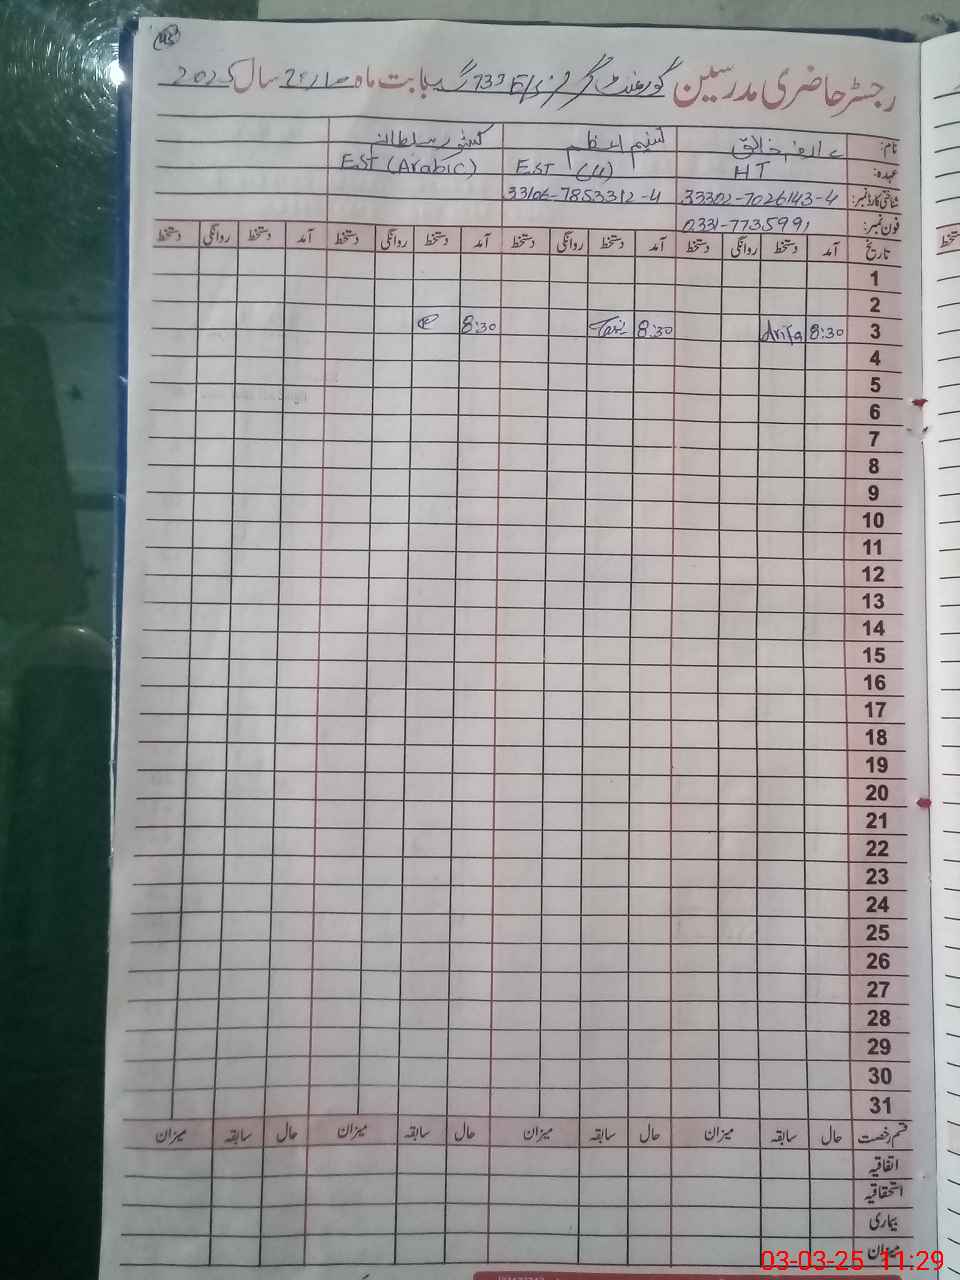 45
رجسٹر حاضری مدرسین گورنمنٹ گرلز ہائی 733 گ ب بابت ماہ مارچ سال 2025
نام: عارفہ خالق تسنیم اعظم کشور سلطانہ
عہدہ: HT EST EST (Arabic)
شناختی کارڈ نمبر: 33302-7026143-4 33106-7853312-4
فون نمبر: 0331-7735991
تاریخ آمد دستخط روانگی دستخط آمد دستخط روانگی دستخط آمد دستخط روانگی دستخط آمد دستخط روانگی دستخط
1
2
3 8:30 Arifa 8:30 8:30
4
5
6
7
8
9
10
11
12
13
14
15
16
17
18
19
20
21
22
23
24
25
26
27
28
29
30
31
قسم رخصت حال سابقہ میزان حال سابقہ میزان حال سابقہ میزان حال سابقہ میزان
اتفاقیہ
استحقاقیہ
بیماری
میزان
03-03-25 11:29